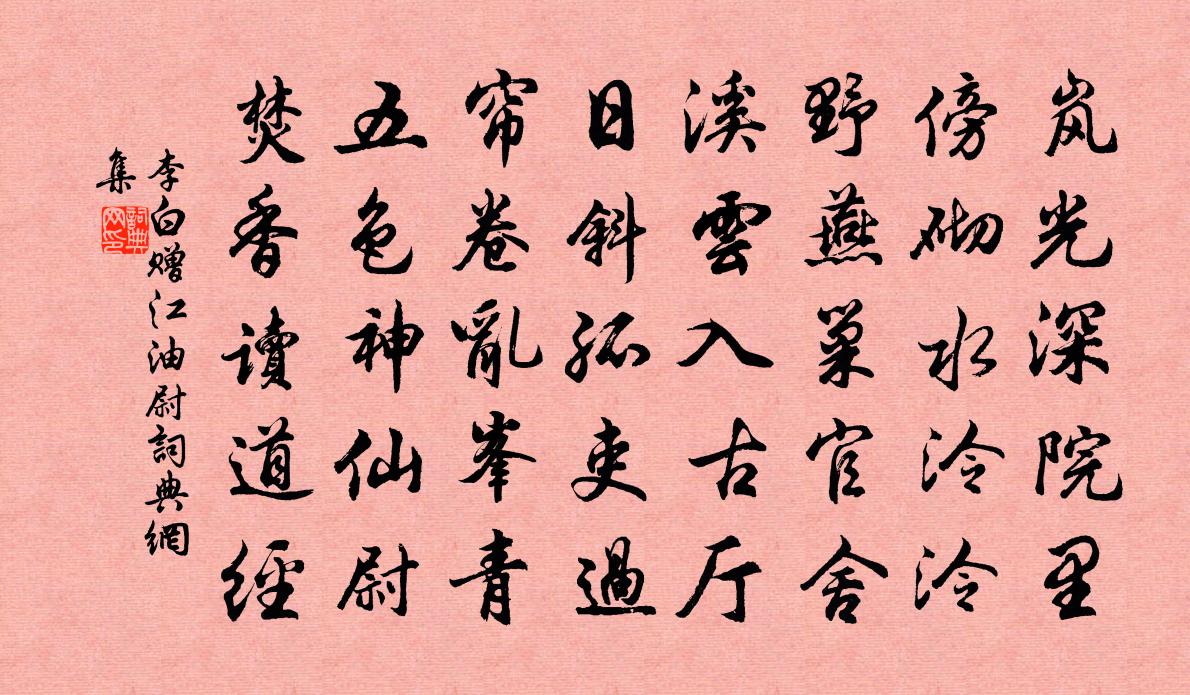 岚光深院里
傍砌水泠泠
野燕巢官舍
溪雲入古厅
日斜孤吏過
帘卷亂峯青
五色神仙尉
焚香讀道經
李白赠江油尉詞典網
集
詞典网印